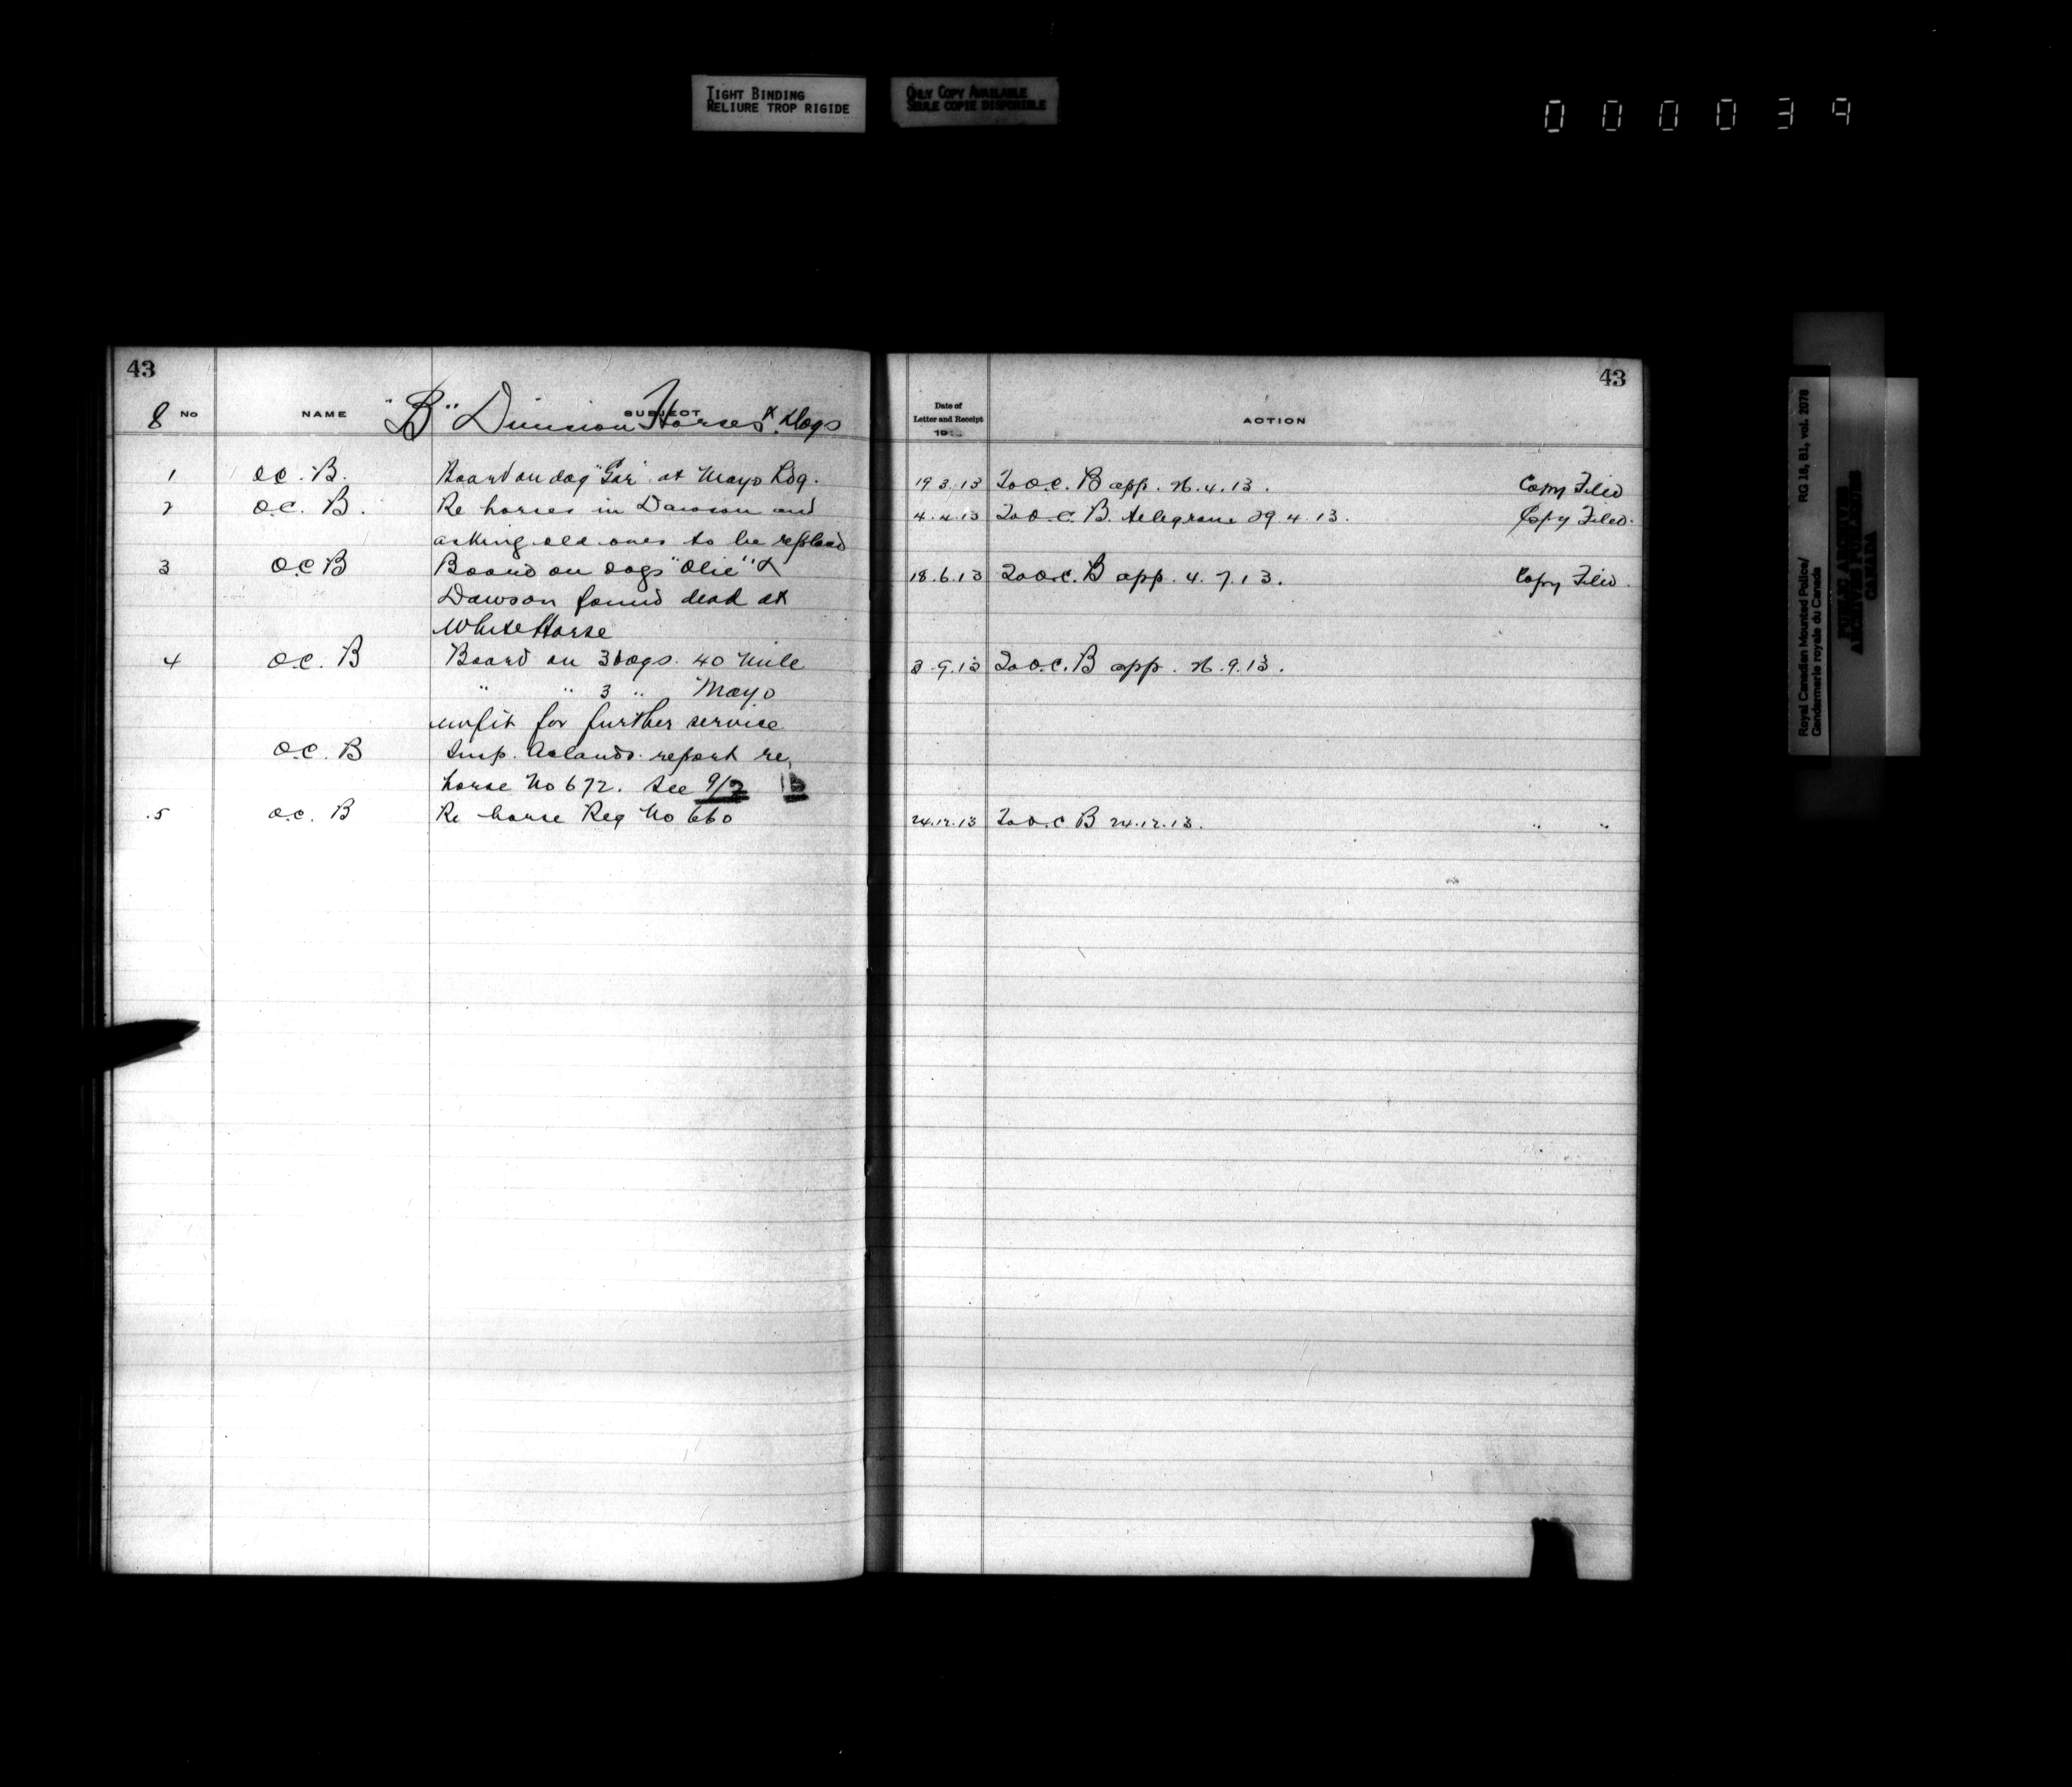 TIGHT BINDING
RELIURE TROP RIGIDE
ONLY COPY AVAILABLE
SEULE COPIE DISPONIBLE
000039
43
8 No NAME SUBJECT
"B" Division Horses & Dogs
1 O.C. B. Board on dog "Gar" at Mayo Ldg.
2 O.C. B. Re horses in Dawson and
asking old ones to be replaced
3 O.C B Board on dogs "Olie" &
Dawson found dead at
White Horse
4 O.C. B Board on 3 dogs. 40 Mile
" " 3 " Mayo
unfit for further service
O.C. B Insp. Aclands report re
horse No 672. See 9/2
5 O.C. B Re horse Reg No 660
43
Date of
Letter and Receipt
19
ACTION
19.3.13 To O.C. B app. 26.4.13. Copy Filed
4.4.13 To O.C. B. telegram 29.4.13. Copy Filed.
18.6.13 To O.C. B app. 4.7.13. Copy Filed.
3.9.13 To O.C. B app. 26.9.13.
24.12.13 To O.C B 24.12.13. " "
Royal Canadian Mounted Police/
Gendarmerie royale du Canada
RG 18, B1, vol. 2078
PUBLIC ARCHIVES
ARCHIVES PUBLIQUES
CANADA